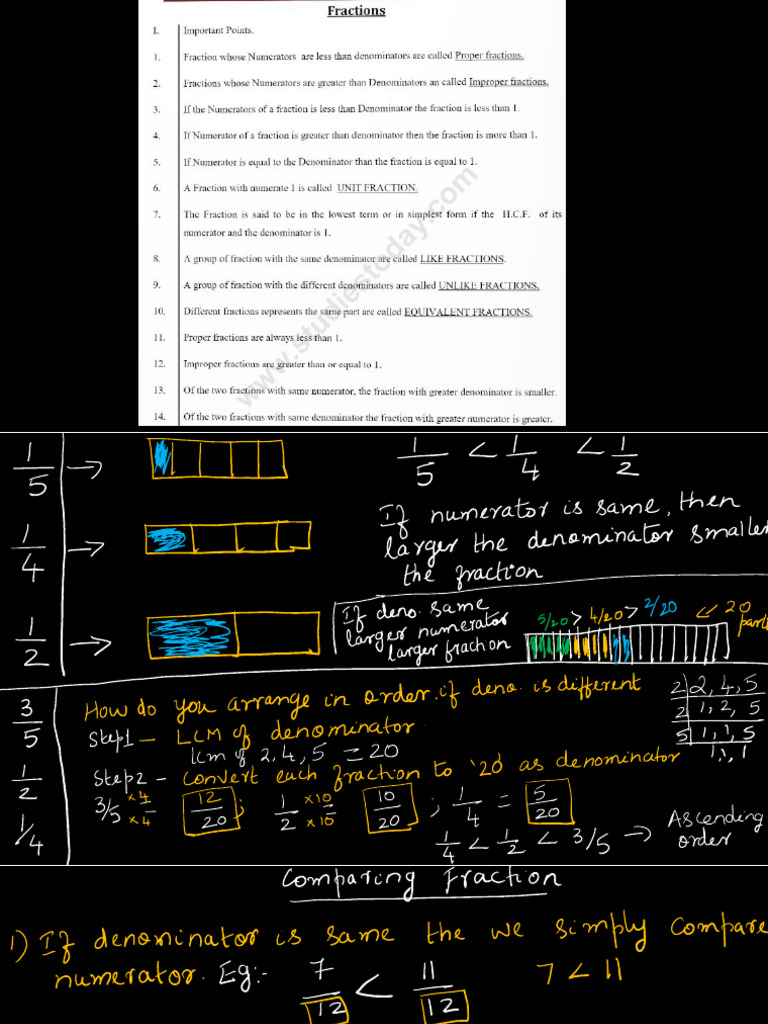 Fractions
I. Important Points.
1. Fraction whose Numerators are less than denominators are called Proper fractions.
2. Fractions whose Numerators are greater than Denominators an called Improper fractions.
3. If the Numerators of a fraction is less than Denominator the fraction is less than 1.
4. If Numerator of a fraction is greater than denominator then the fraction is more than 1.
5. If Numerator is equal to the Denominator than the fraction is equal to 1.
6. A Fraction with numerate 1 is called UNIT FRACTION.
7. The Fraction is said to be in the lowest term or in simplest form if the H.C.F. of its
numerator and the denominator is 1.
8. A group of fraction with the same denominator are called LIKE FRACTIONS.
9. A group of fraction with the different denominators are called UNLIKE FRACTIONS.
10. Different fractions represents the same part are called EQUIVALENT FRACTIONS.
11. Proper fractions are always less than 1.
12. Improper fractions are greater than or equal to 1.
13. Of the two fractions with same numerator, the fraction with greater denominator is smaller.
14. Of the two fractions with same denominator the fraction with greater numerator is greater.
www.studiestoday.com
1/5 →
1/5 < 1/4 < 1/2
If numerator is same, then
larger the denominator smaller
the fraction
1/4 →
1/2 →
If deno. same
larger numerator
larger fraction
5/20 > 4/20 > 2/20 ← 20
parts
3/5
1/2
1/4
How do you arrange in order. if deno. is different
Step1 – LCM of denominator.
lcm of 2,4,5 = 20
2 2, 4, 5
2 1, 2, 5
5 1, 1, 5
1, 1, 1
Step2 – convert each fraction to '20' as denominator
3/5 ×4/×4 = 12/20 ; 1/2 ×10/×10 = 10/20 ; 1/4 = 5/20
1/4 < 1/2 < 3/5 → Ascending
order
Comparing Fraction
1) If denominator is same the we simply compare
numerator. Eg:- 7/12 < 11/12 7 < 11